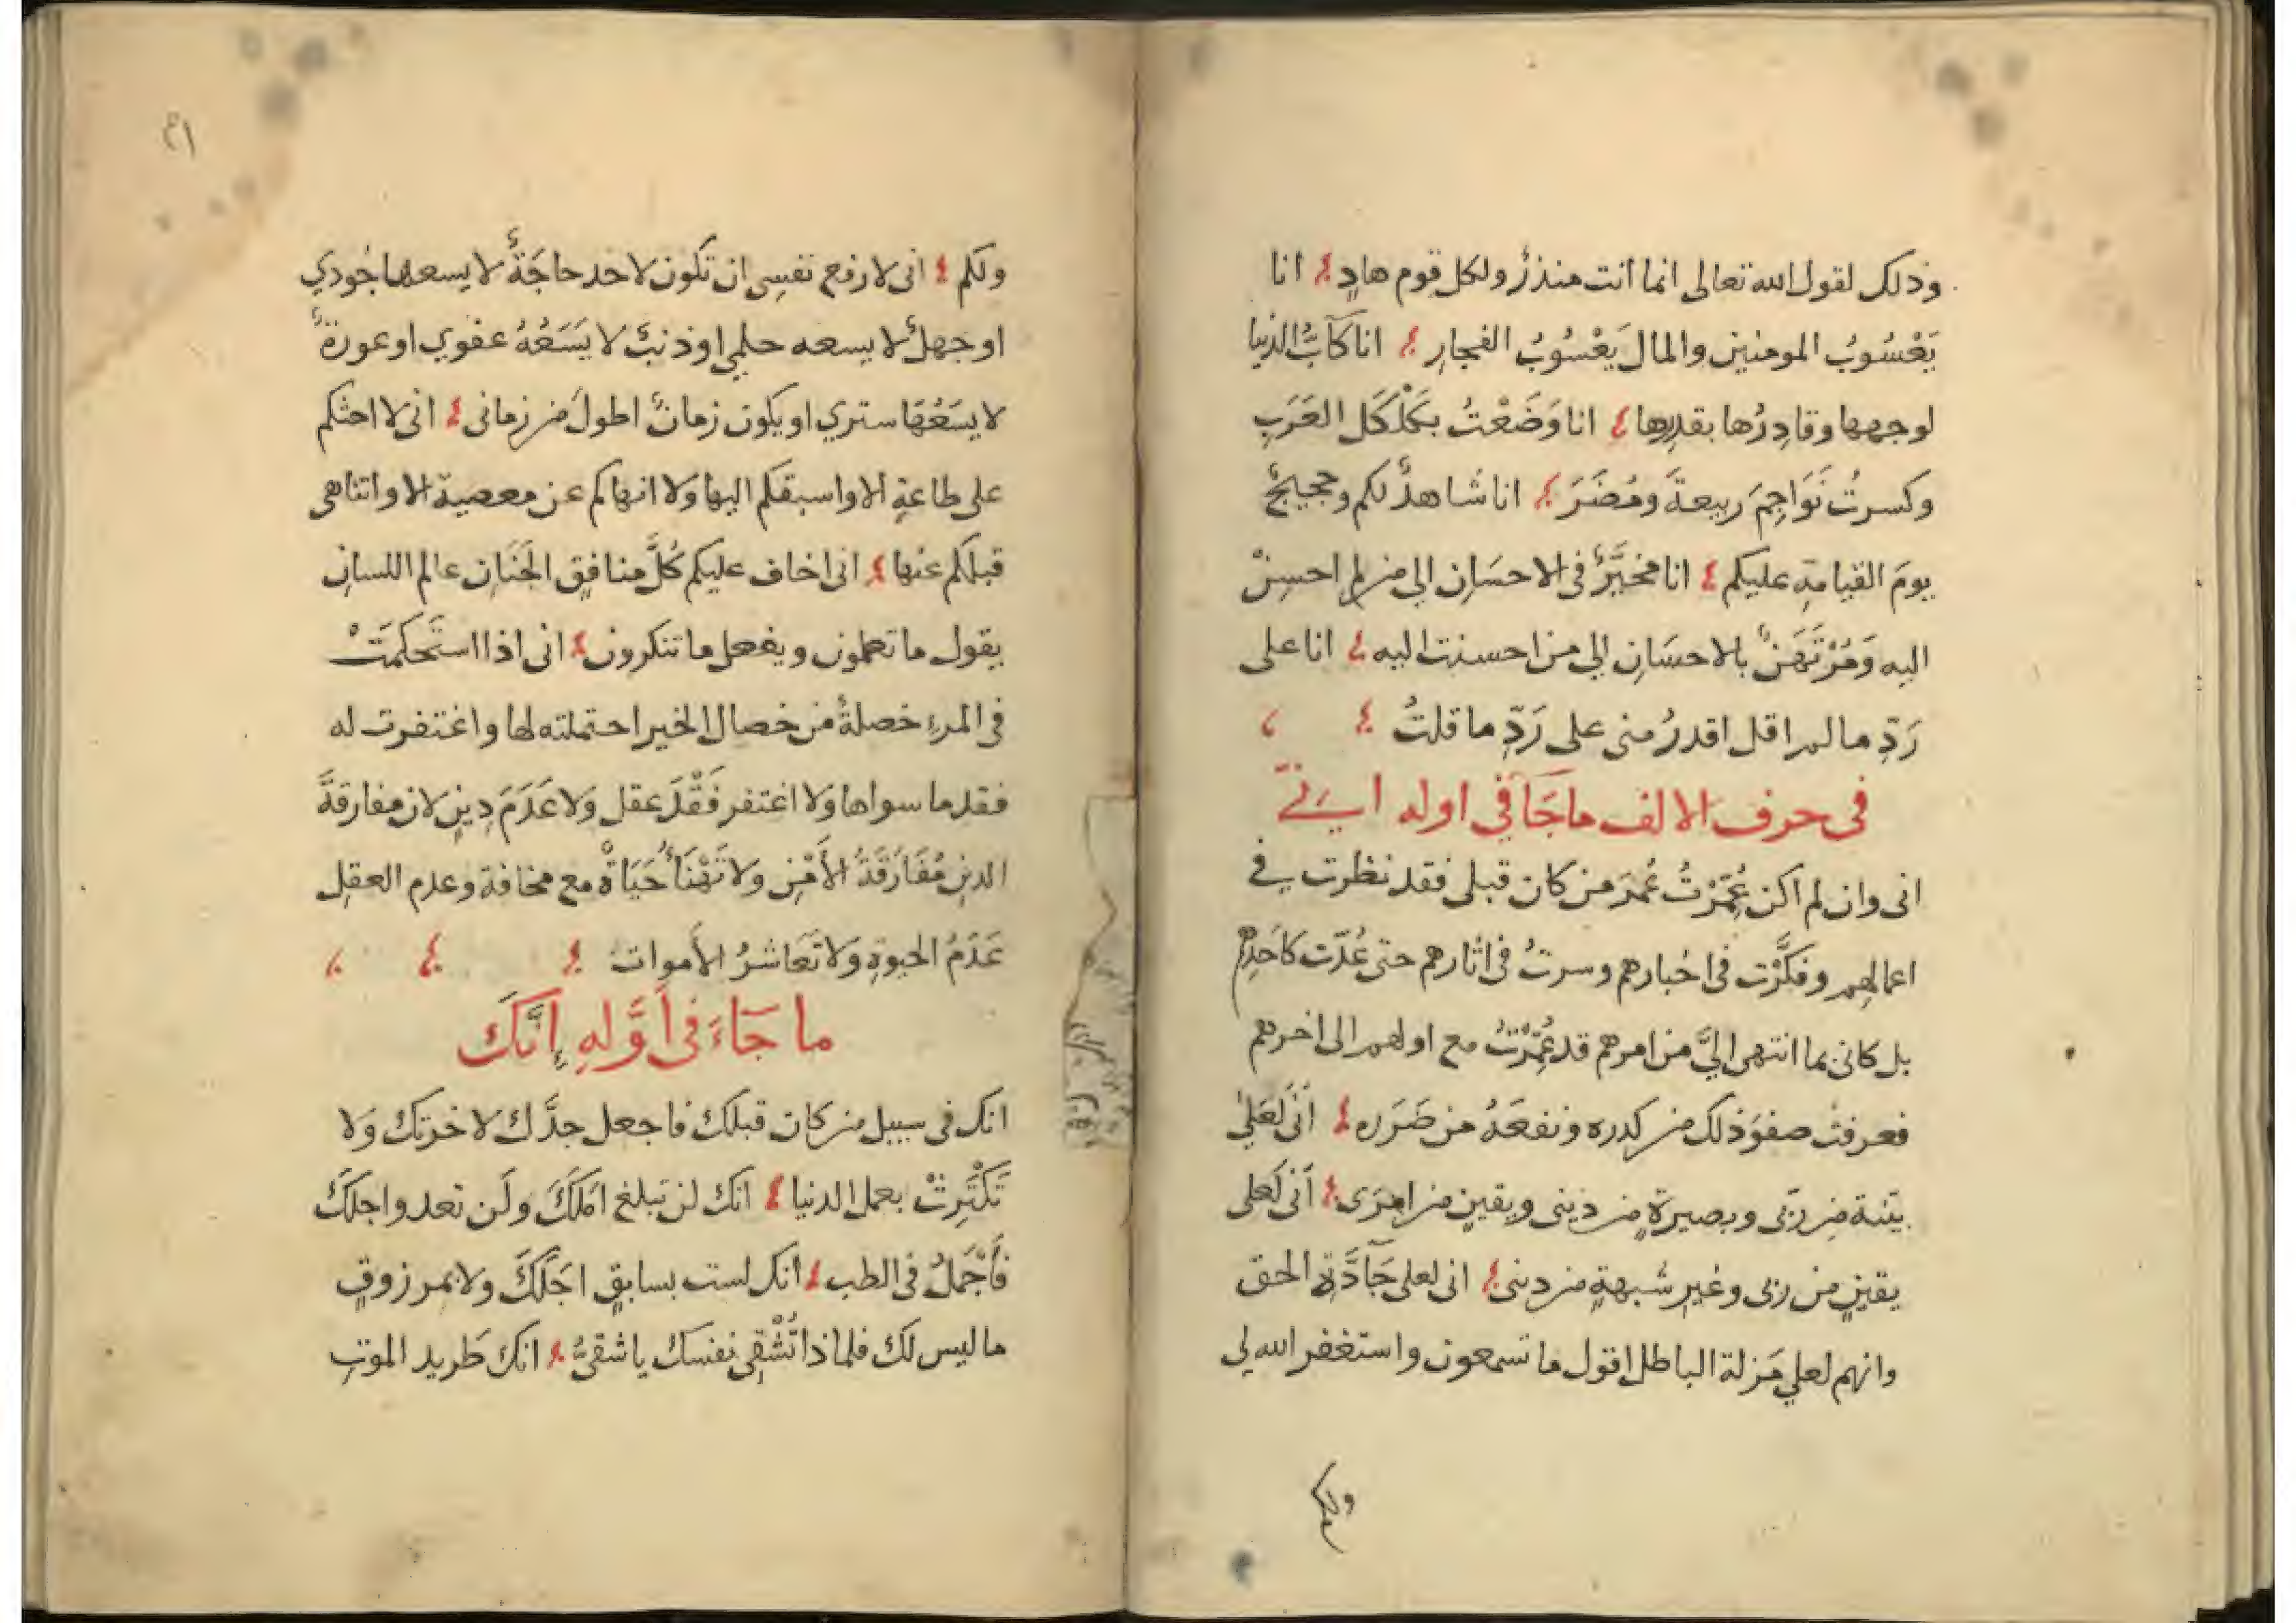 وذلك لقول الله تعالى انما انت منذرٌ ولكل قوم هادٍ انا
يَعْسُوبُ المومنين والمال يَعْسُوبُ الفجارِ انا كآبُّ الدنيا
لوجهها وقادِرُها بقدرها انا وَضَعْتُ بكَلْكَل العَرَبِ
وكسرتُ نَوَاجِمَ ربيعةَ ومُضَرَ انا شاهدٌ لكم وحجيجٌ
يومَ القيامةِ عليكم انا مخيَّرٌ فى الاحسَانِ الي من لم احسِنْ
اليه وَمُرْتَهَنٌ بالاحسَانِ الي من احسنت اليه انا على
رَدِّ ما لم اقل اقدرُ منى على رَدِّ ما قلتُ
فى حرف الالف ما جَآ في اوله اِنِّي
انى وان لم اكن عُمِّرْتُ عُمرَ من كان قبلى فقد نظرت في
اعمالهم وفكَّرْت فى اخبارهم وسرتُ فى اثارهم حتى عُدّت كاَحَدِهِم
بل كانى بما انتهى اليَّ من امرهم قد عُمِّرْتُ مع اولهم الى اخرهم
فعرفتُ صفوَ ذلك من كدره ونفعَهُ من ضَرَره اَنّى لَعَلىٰ
بيّنة من رَبّى وبصيرةٍ من دينى ويقينٍ من امرى اَنى لَعلى
يقينٍ من ربى وغيرِ شبهةٍ من دينى انى لعلى جَآدَّةِ الحق
وانهم لعلي مَزلة الباطل اقول ما تسمعون واستغفر الله لي
ولكم
٣١
ولكم انى لارفع نفسِى ان تكون لاحد حاجَةٌ لا يسعها جُودي
او جهلٌ لا يسعه حلمي او ذنبٌ لا يَسَعُهُ عفوي او عورةٌ
لا يسَعُهَا ستري او يكون زمانٌ اطولَ من زمانى انى لا احثكم
على طاعةٍ الا واسبقكم اليها ولا انهاكم عن معصية الا واتناهى
قبلكم عنها انى اخاف عليكم كُلَّ منافقِ الجَنَانِ عالم اللسانِ
يقول ما تعلمون ويفعل ما تنكرون انى اذا استَحكمَتْ
فى المرءِ خصلةٌ من خصال الخير احتملته لها واغتفرت له
فقد ما سواها وَلا اغتفر فَقْدَ عقل وَلا عَدَمَ دِينٍ لان مفارقةَ
الدينِ مُفَارَقَةُ الأَمْنِ ولا تَهْنَأُ حَيَاةٌ مع مخافة وعدم العقلِ
عَدَمُ الحيوةِ وَلا تَعَاشرُ الأموات
ما جَاءَ فى أوَّلهِ إنَّكَ
انك فى سبيل من كان قبلك فاجعل جدَّك لاخرتك وَلا
تَكْتَرِثْ بعمل الدنيا انك لن تبلغ امَلكَ ولَن تعدوا جلَكَ
فَأَجْمَلْ فى الطلب انك لست بسابقٍ اجَلَكَ ولا بمرزوقٍ
ما ليس لك فلماذا تُشْقِى نفسك يا شقىُّ انك طريد الموتِ